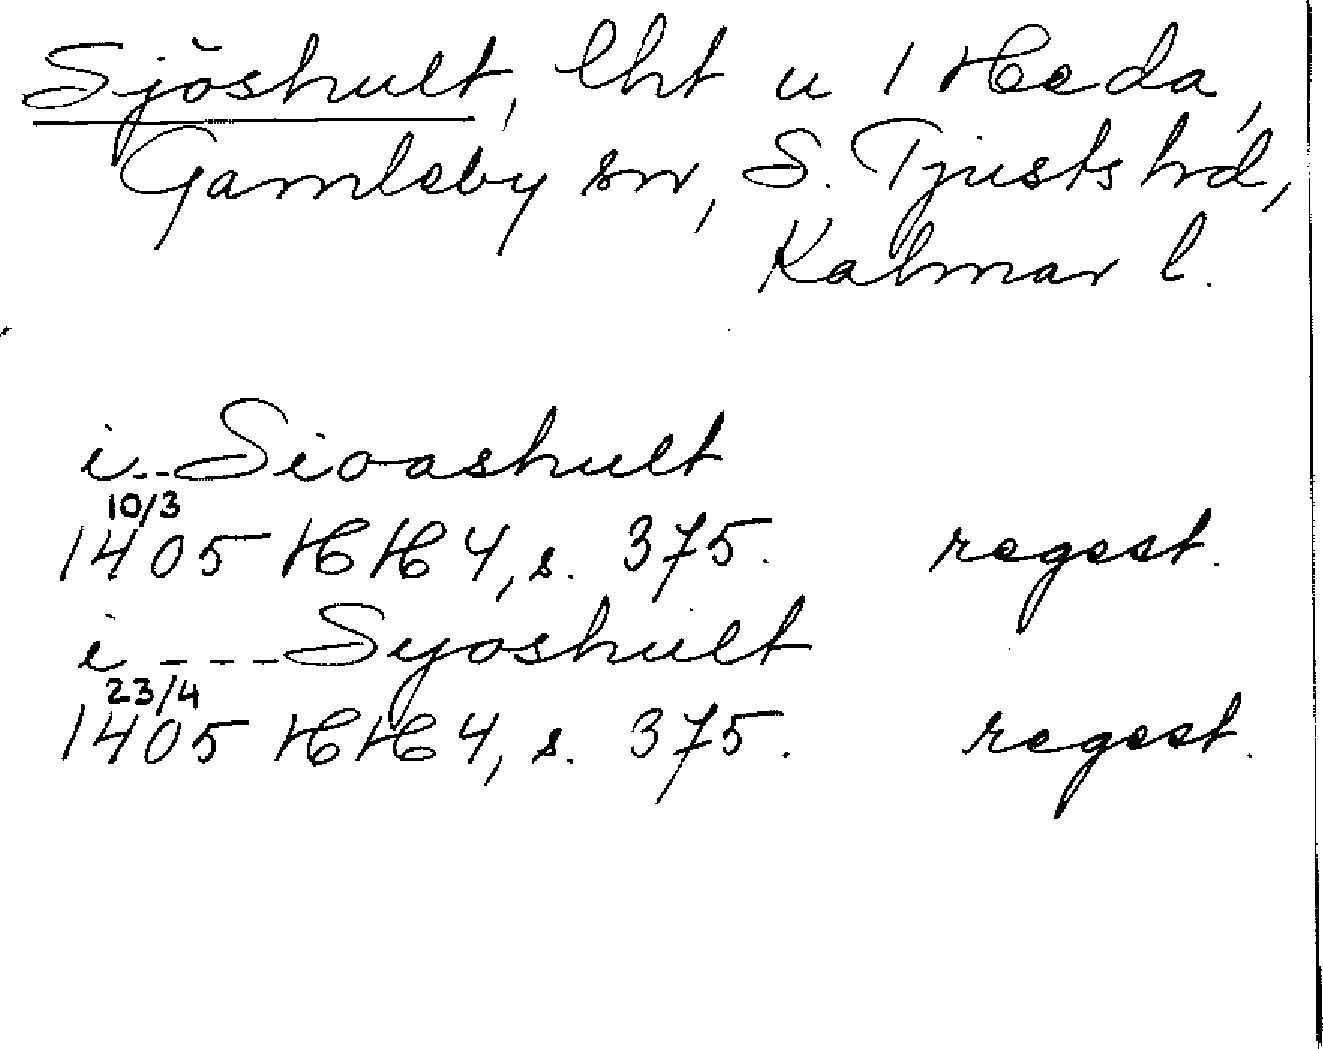 Sjöshult, lht u 1 Heda,
Gamleby sn, S. Tjusts hd,
Kalmar l.
i -- Sioashult
10/3
1405 HH 4, s. 375. regest.
i --- Syoshult
23/4
1405 HH 4, s. 375. regest.